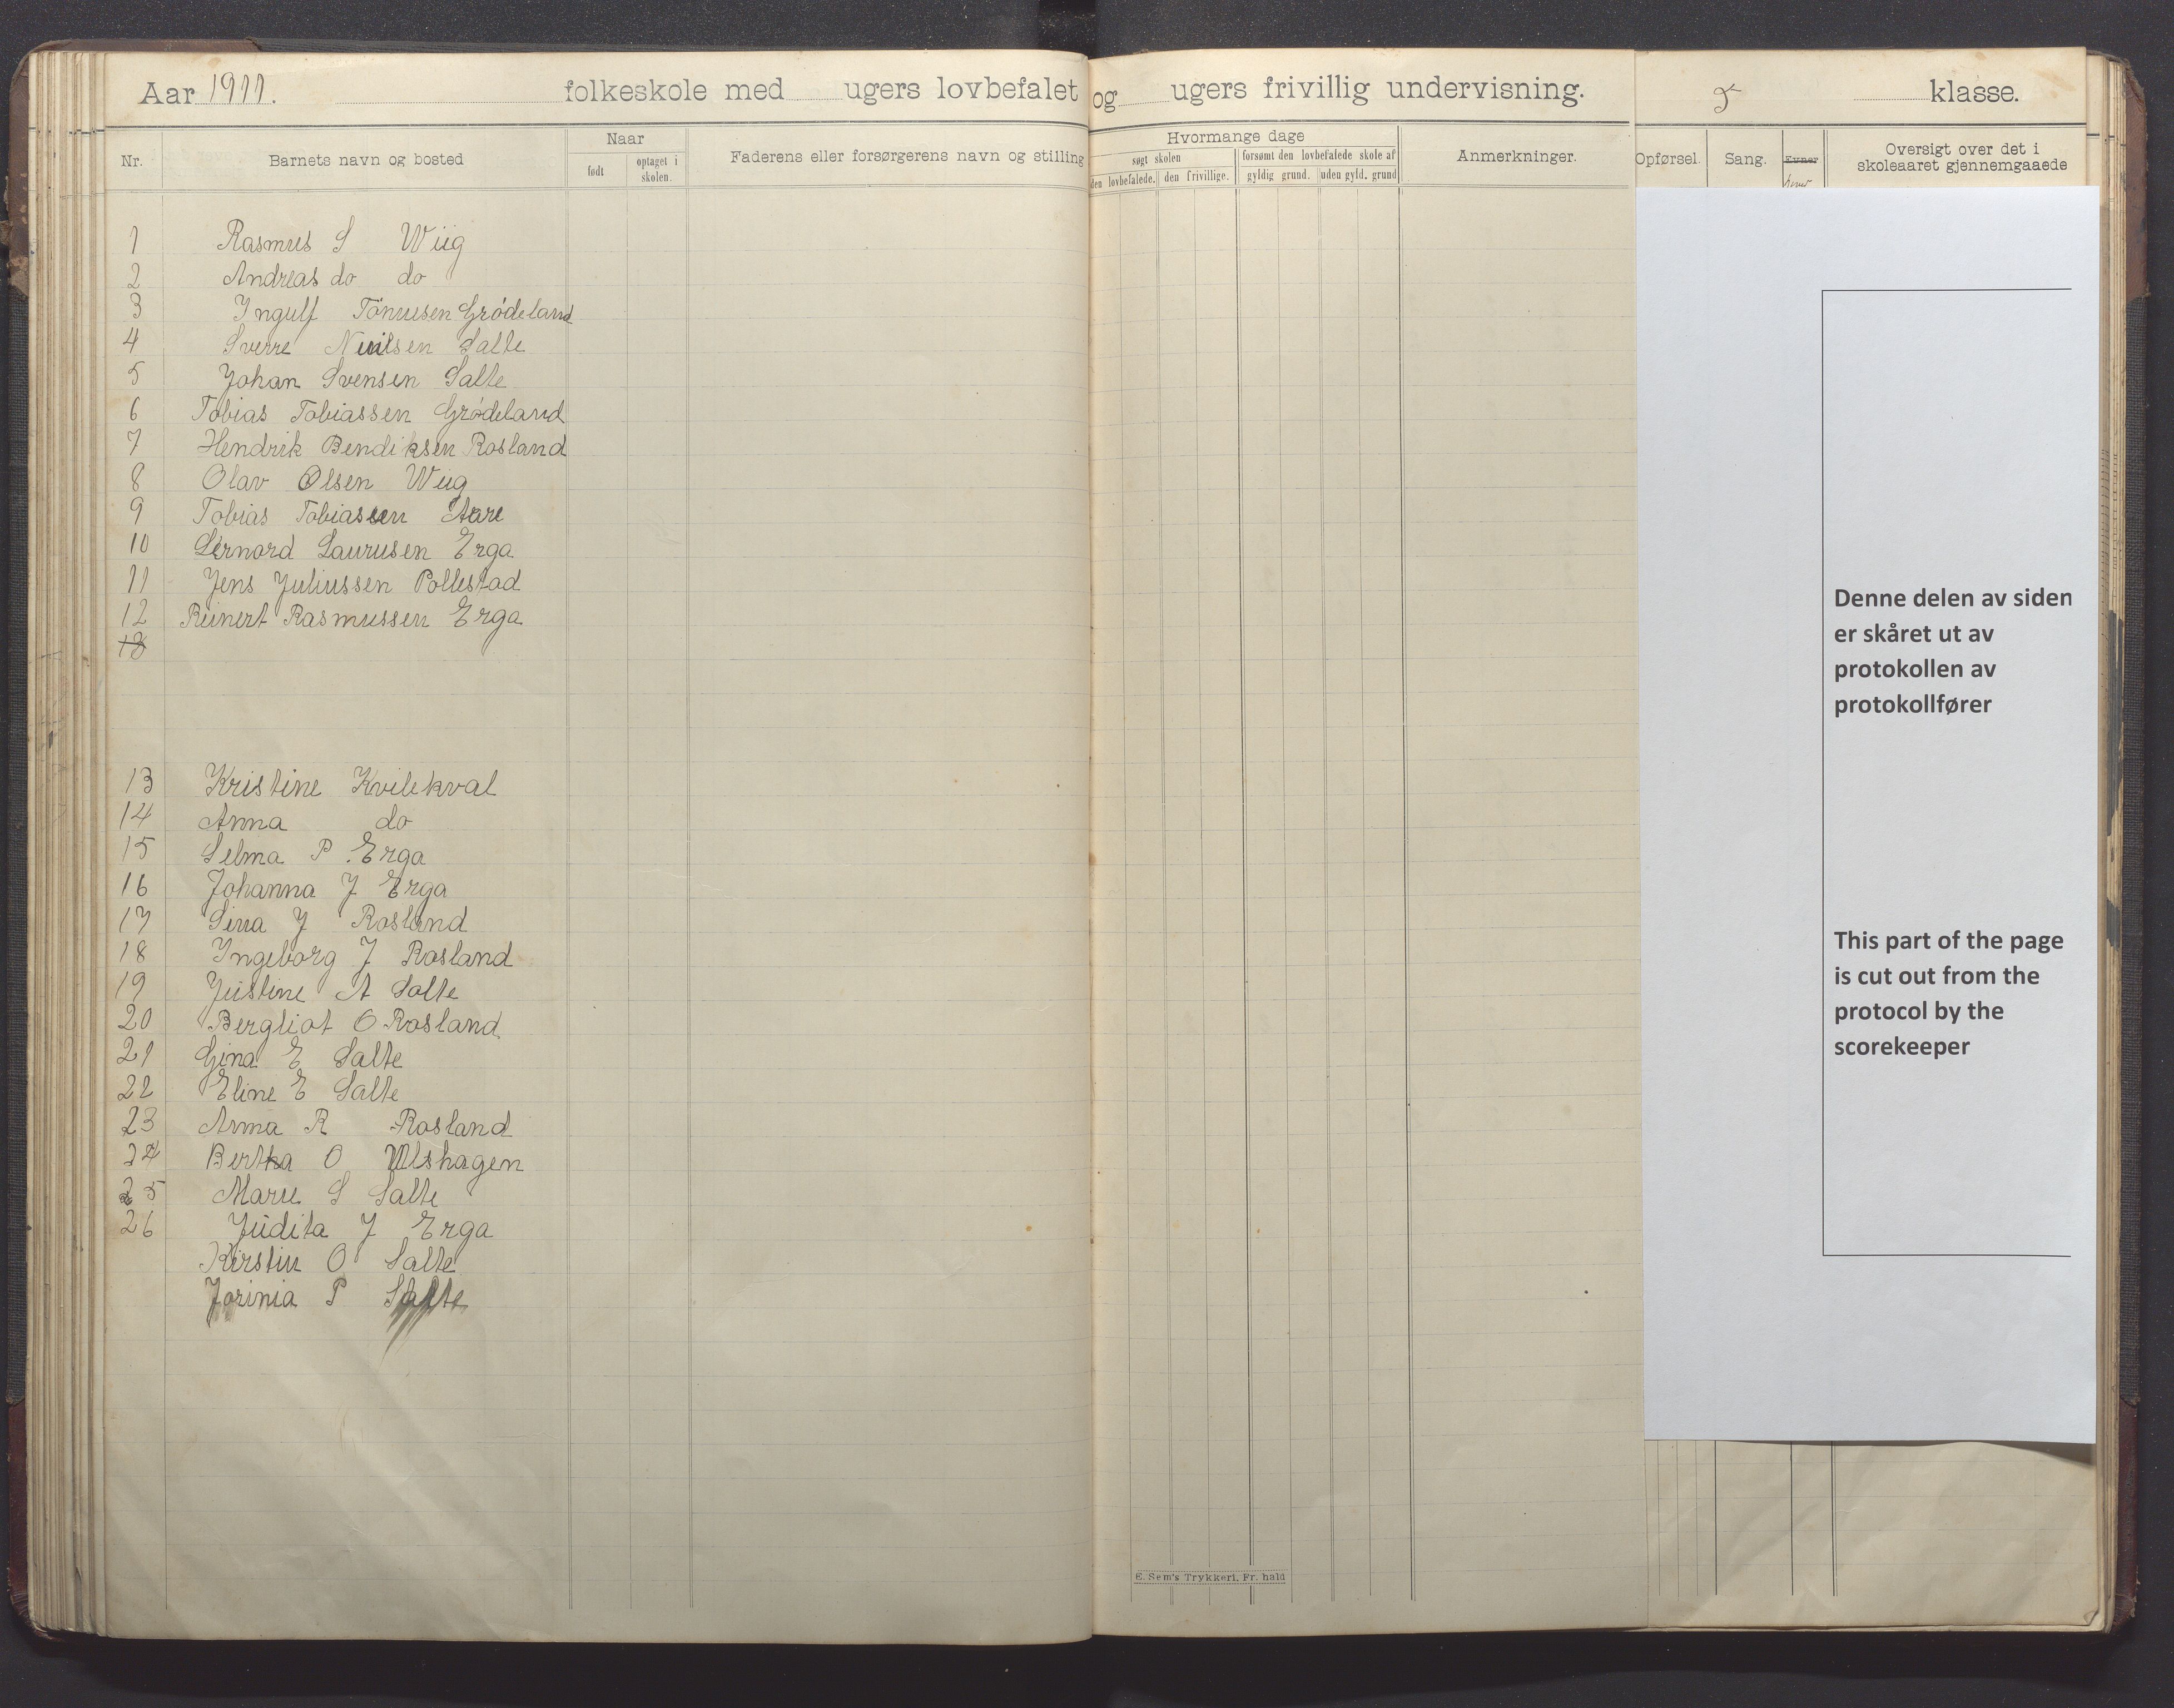 Aar 1911. folkeskole med ugers lovbefalet og ugers frivillig undervisning. 5 klasse.
Nr. Barnets navn og bosted Naar født optaget i skolen. Faderens eller forsørgerens navn og stilling Hvormange dage søgt skolen den lovbefalede. den frivillige. forsømt den lovbefalede skole af gyldig grund. uden gyld. grund Anmerkninger. Opførsel. Sang. Evner Oversigt over det i skoleaaret gjennemgaaede
1 Rasmus S Wiig
2 Andreas do do
3 Ingulf Tönnesen Grödeland
4 Sverre Neilsen Salte
5 Johan Svensen Salte
6 Tobias Tobiassen Grödeland
7 Hendrik Bendiksen Rosland
8 Olav Olsen Wiig
9 Tobias Tobiassen Aare
10 Lernard Laurusen Erga
11 Jens Juliussen Pollestad
12 Reinert Rasmussen Erga
13
13 Kristine Kvilekval
14 Anna do
15 Selma P. Erga
16 Johanna J Erga
17 Sina J Rosland
18 Ingeborg J Rosland
19 Justine A Salte
20 Bergliot O Rosland
21 Gina E Salte
22 Eline E Salte
23 Anna R Rosland
24 Bertha O Ulshagen
25 Marie S Salte
26 Judita J Erga
Kirstin O Salte
Jorinia P Salte
Denne delen av siden
er skåret ut av
protokollen av
protokollfører
This part of the page
is cut out from the
protocol by the
scorekeeper
E. Sem's Trykkeri, Fr. hald